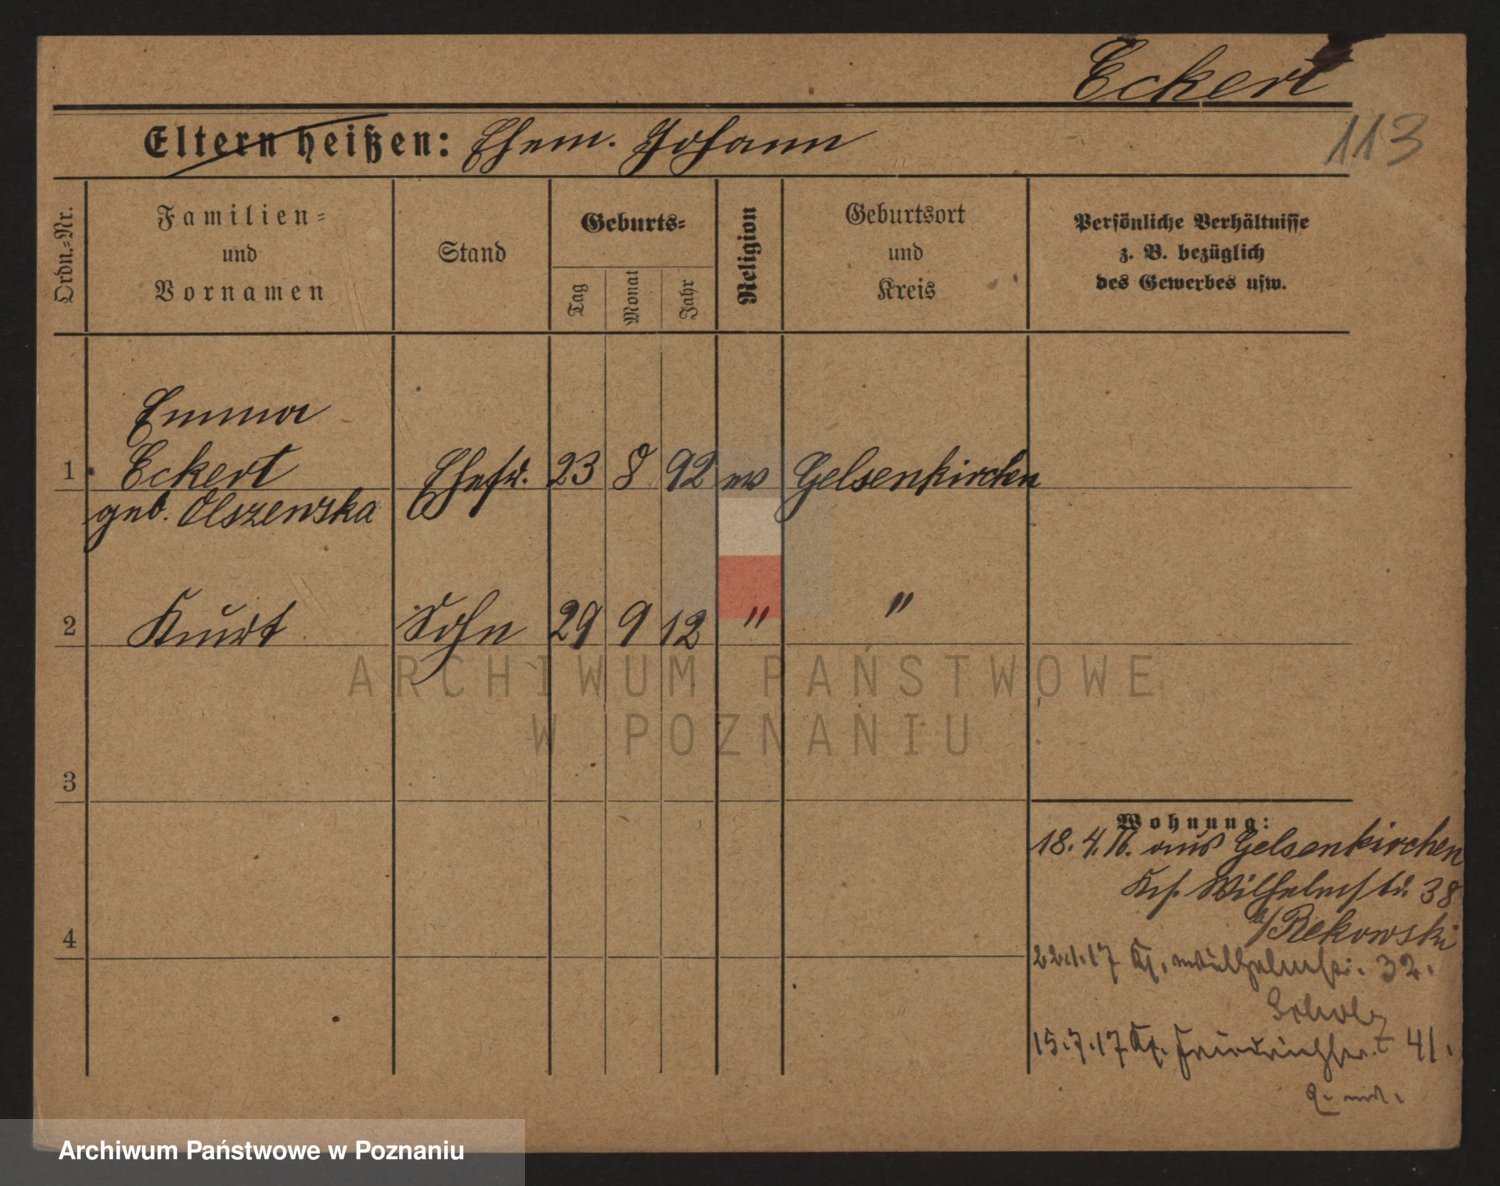 Eckert
113
Eltern heißen: Ehem. Johann
Ordn.-Nr.
Familien-
und
Vornamen
Stand
Geburts-
Tag
Monat
Jahr
Religion
Geburtsort
und
Kreis
Persönliche Verhältnisse
z. B. bezüglich
des Gewerbes usw.
Emma
1 Eckert Ehefr. 23 8 92 ev Gelsenkirchen
geb. Olszewska
2 Kurt Sohn 29 9 12 " "
3
4
Wohnung:
18.4.16. aus Gelsenkirchen
Wilhelmstr. 38
b/Rekowski
22.1.17 Wilhelmstr. 32.
Scholz
15.7.17 Friedrichstr. 41.
ARCHIWUM PAŃSTWOWE
W POZNANIU
Archiwum Państwowe w Poznaniu